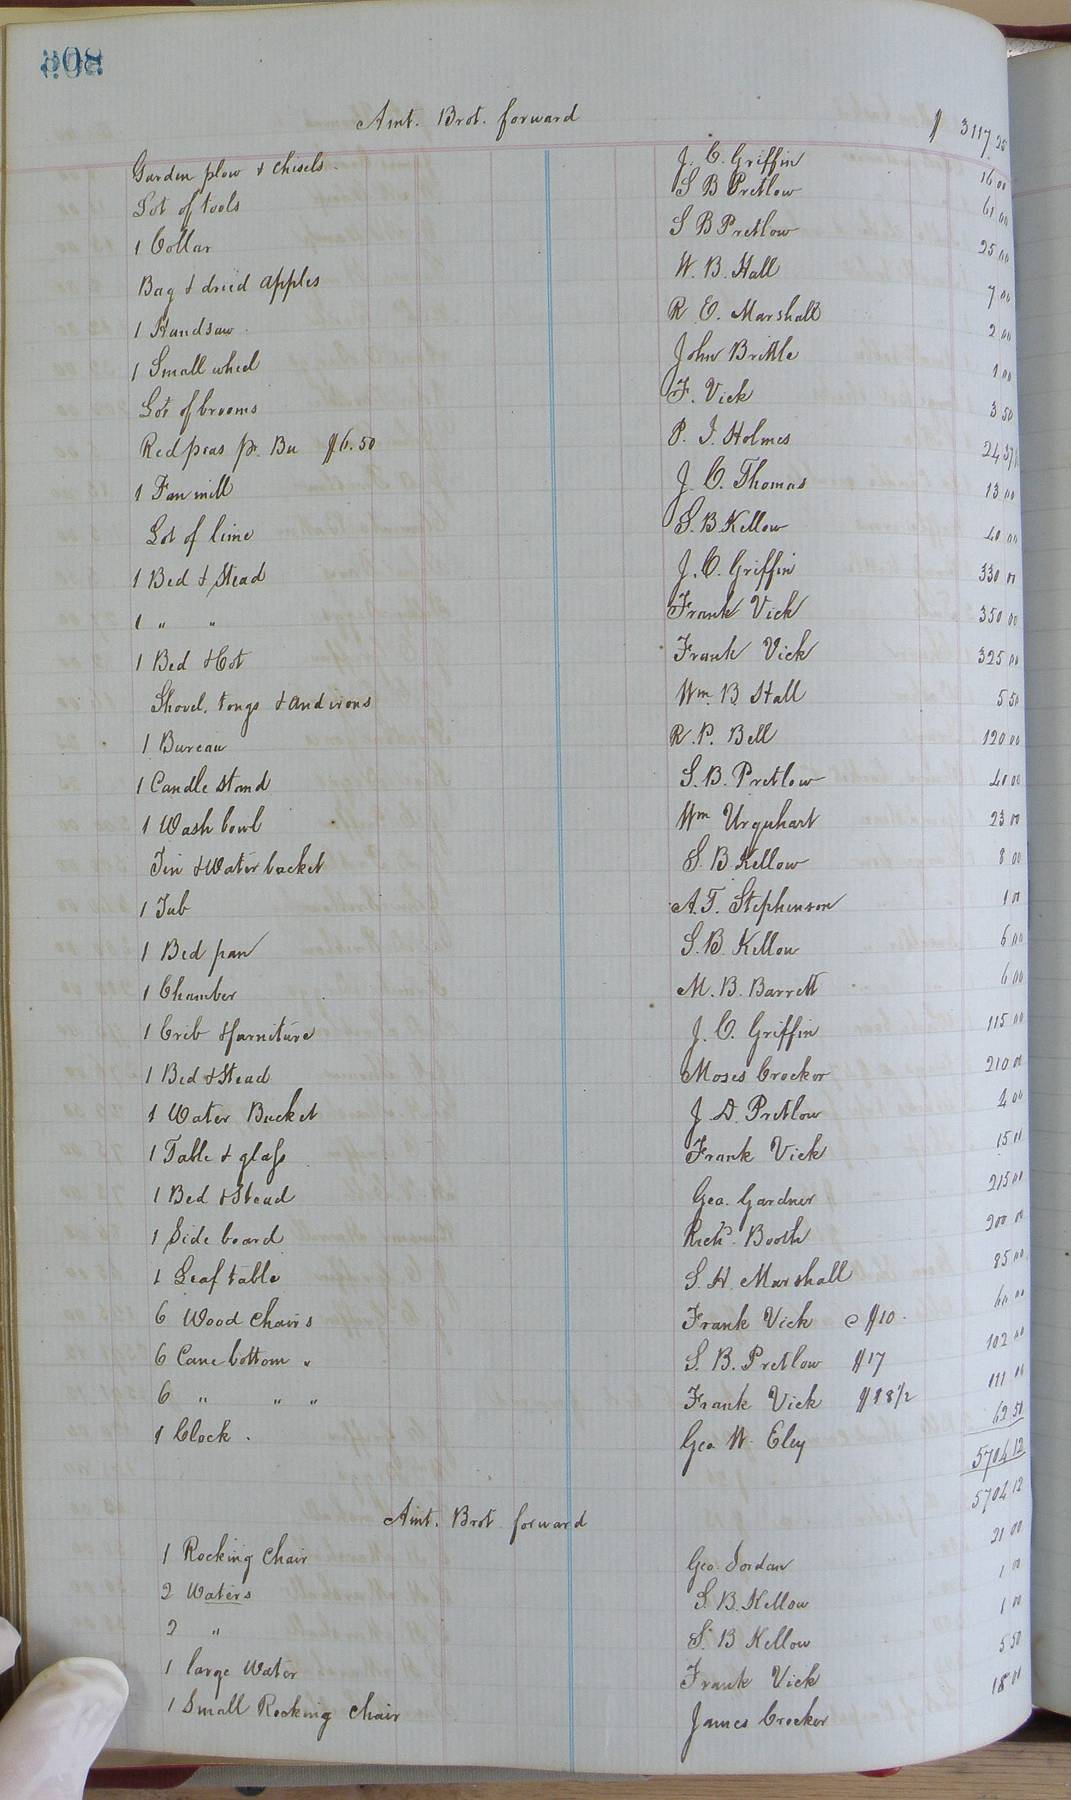 308
Amt. Brot. forward $ 3117.25
Garden plow & chisels. J. C. Griffin 16 00
Lot of tools S B Pretlow 61 00
1 Collar S B Pretlow 25 00
Bag & dried apples W. B. Hall 7 00
1 Handsaw R. E. Marshall 2 00
1 Small wheel John Brittle 1 00
Lot of brooms F. Vick 3 50
Red peas pr. Bu $6.50 P. J. Holmes 24 37½
1 Fan mill J. C. Thomas 13 00
Lot of lime S. B. Kellow 40 00
1 Bed & Stead J. C. Griffin 330 00
1 " " Frank Vick 350 00
1 Bed & Cot Frank Vick 325 00
Shovel, tongs & andirons Wm. B. Hall 5 50
1 Bureau R. P. Bell 120 00
1 Candle stand S. B. Pretlow 40 00
1 Wash bowl Wm Urquhart 23 00
Tin & Water bucket S. B. Kellow 8 00
1 Tub A. T. Stephenson 1 00
1 Bed pan S. B. Kellow 6 00
1 Chamber M. B. Barrett 6 00
1 Crib & furniture J. C. Griffin 115 00
1 Bed & Stead Moses Crocker 210 00
1 Water Bucket J. D. Pretlow 4 00
1 Table & glass Frank Vick 15 00
1 Bed & Stead Geo. Gardner 215 00
1 Side board Richd. Booth 200 00
1 Leaf table S. H. Marshall 85 00
6 Wood chairs Frank Vick @ $10. 60 00
6 Cane bottom " S. B. Pretlow $17 102 00
6 " " " Frank Vick $18½ 111 00
1 Clock. Geo W. Eley 62 50
5704 12
Amt. Brot forward 5704 12
1 Rocking Chair Geo. Jordan 21 00
2 Waters S. B. Kellow 1 00
2 " S. B Kellow 1 00
1 large Water Frank Vick 5 50
1 Small Rocking chair James Crocker 18 00